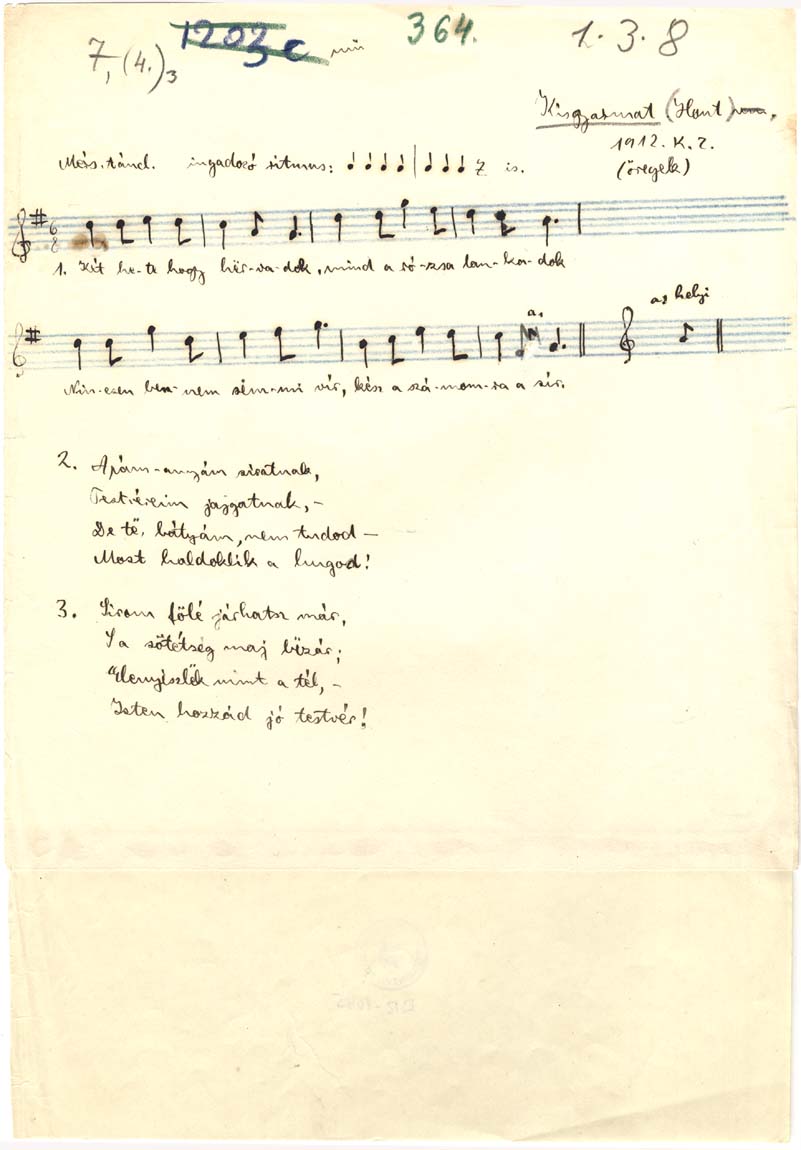 7, (4.)3 1202 e 364. 1. 3. 8
Kisgyarmat (Hont)
1912. K. Z.
(öregek)
Mérs. táncl. ingadozó ritmus: is.
1. Két he-te hogy hër-va-dok, mind a ró-zsa lan-ka-dok
a,
az helyi
Nin-csen ben-nem sëm-mi vír, kész a szá-mom-ra a sír.
2. Apám-anyám siratnak,
Testvéreim jajgatnak, –
De të, bátyám, nem tudod –
Most haldoklik a hugod!
3. Sirom fölé járhatsz már,
S a sötétség maj bëzár;
Elenyiszlëk mint a tél, –
Isten hozzád jó testvér!